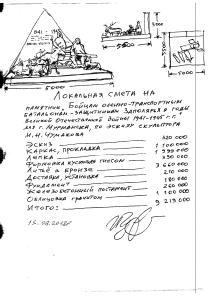 1941-1945
5000
5000
5000
Локальная смета на
памятник, Бойцам оленно-транспортным
батальонам - защитникам Заполярья в годы
Великой Отечественной Войны 1941-1945 г.г.
г. Мурманска, по эскизу скульптора
Н.Н. Чумакова
Эскиз 320 000
Каркас, прокладка 1 100 000
Лепка 1 999 000
Формовка кусковая гипсом 350 000
Литьё в бронзе 3 660 000
Доставка, установка 210 000
Фундамент 180 000
Железобетонный постамент 260 000
Облицовка гранитом 1 100 000
Итого: 9 219 000